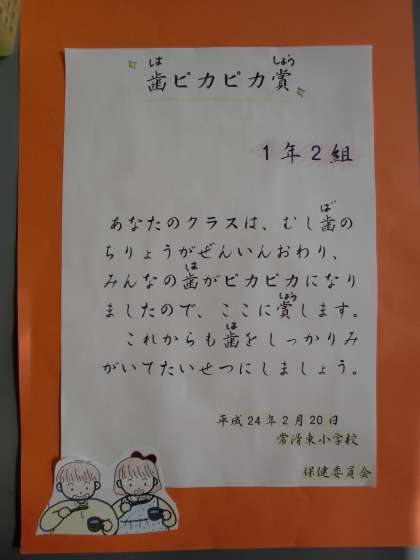 は しょう
歯ピカピカ賞
1年2組
ば
あなたのクラスは、むし歯の
ちりょうがぜんいんおわり、
は
みんなの歯がピカピカになり
しょう
ましたので、ここに賞します。
は
これからも歯をしっかりみ
がいてたいせつにしましょう。
平成24年2月20日
常滑東小学校
保健委員会